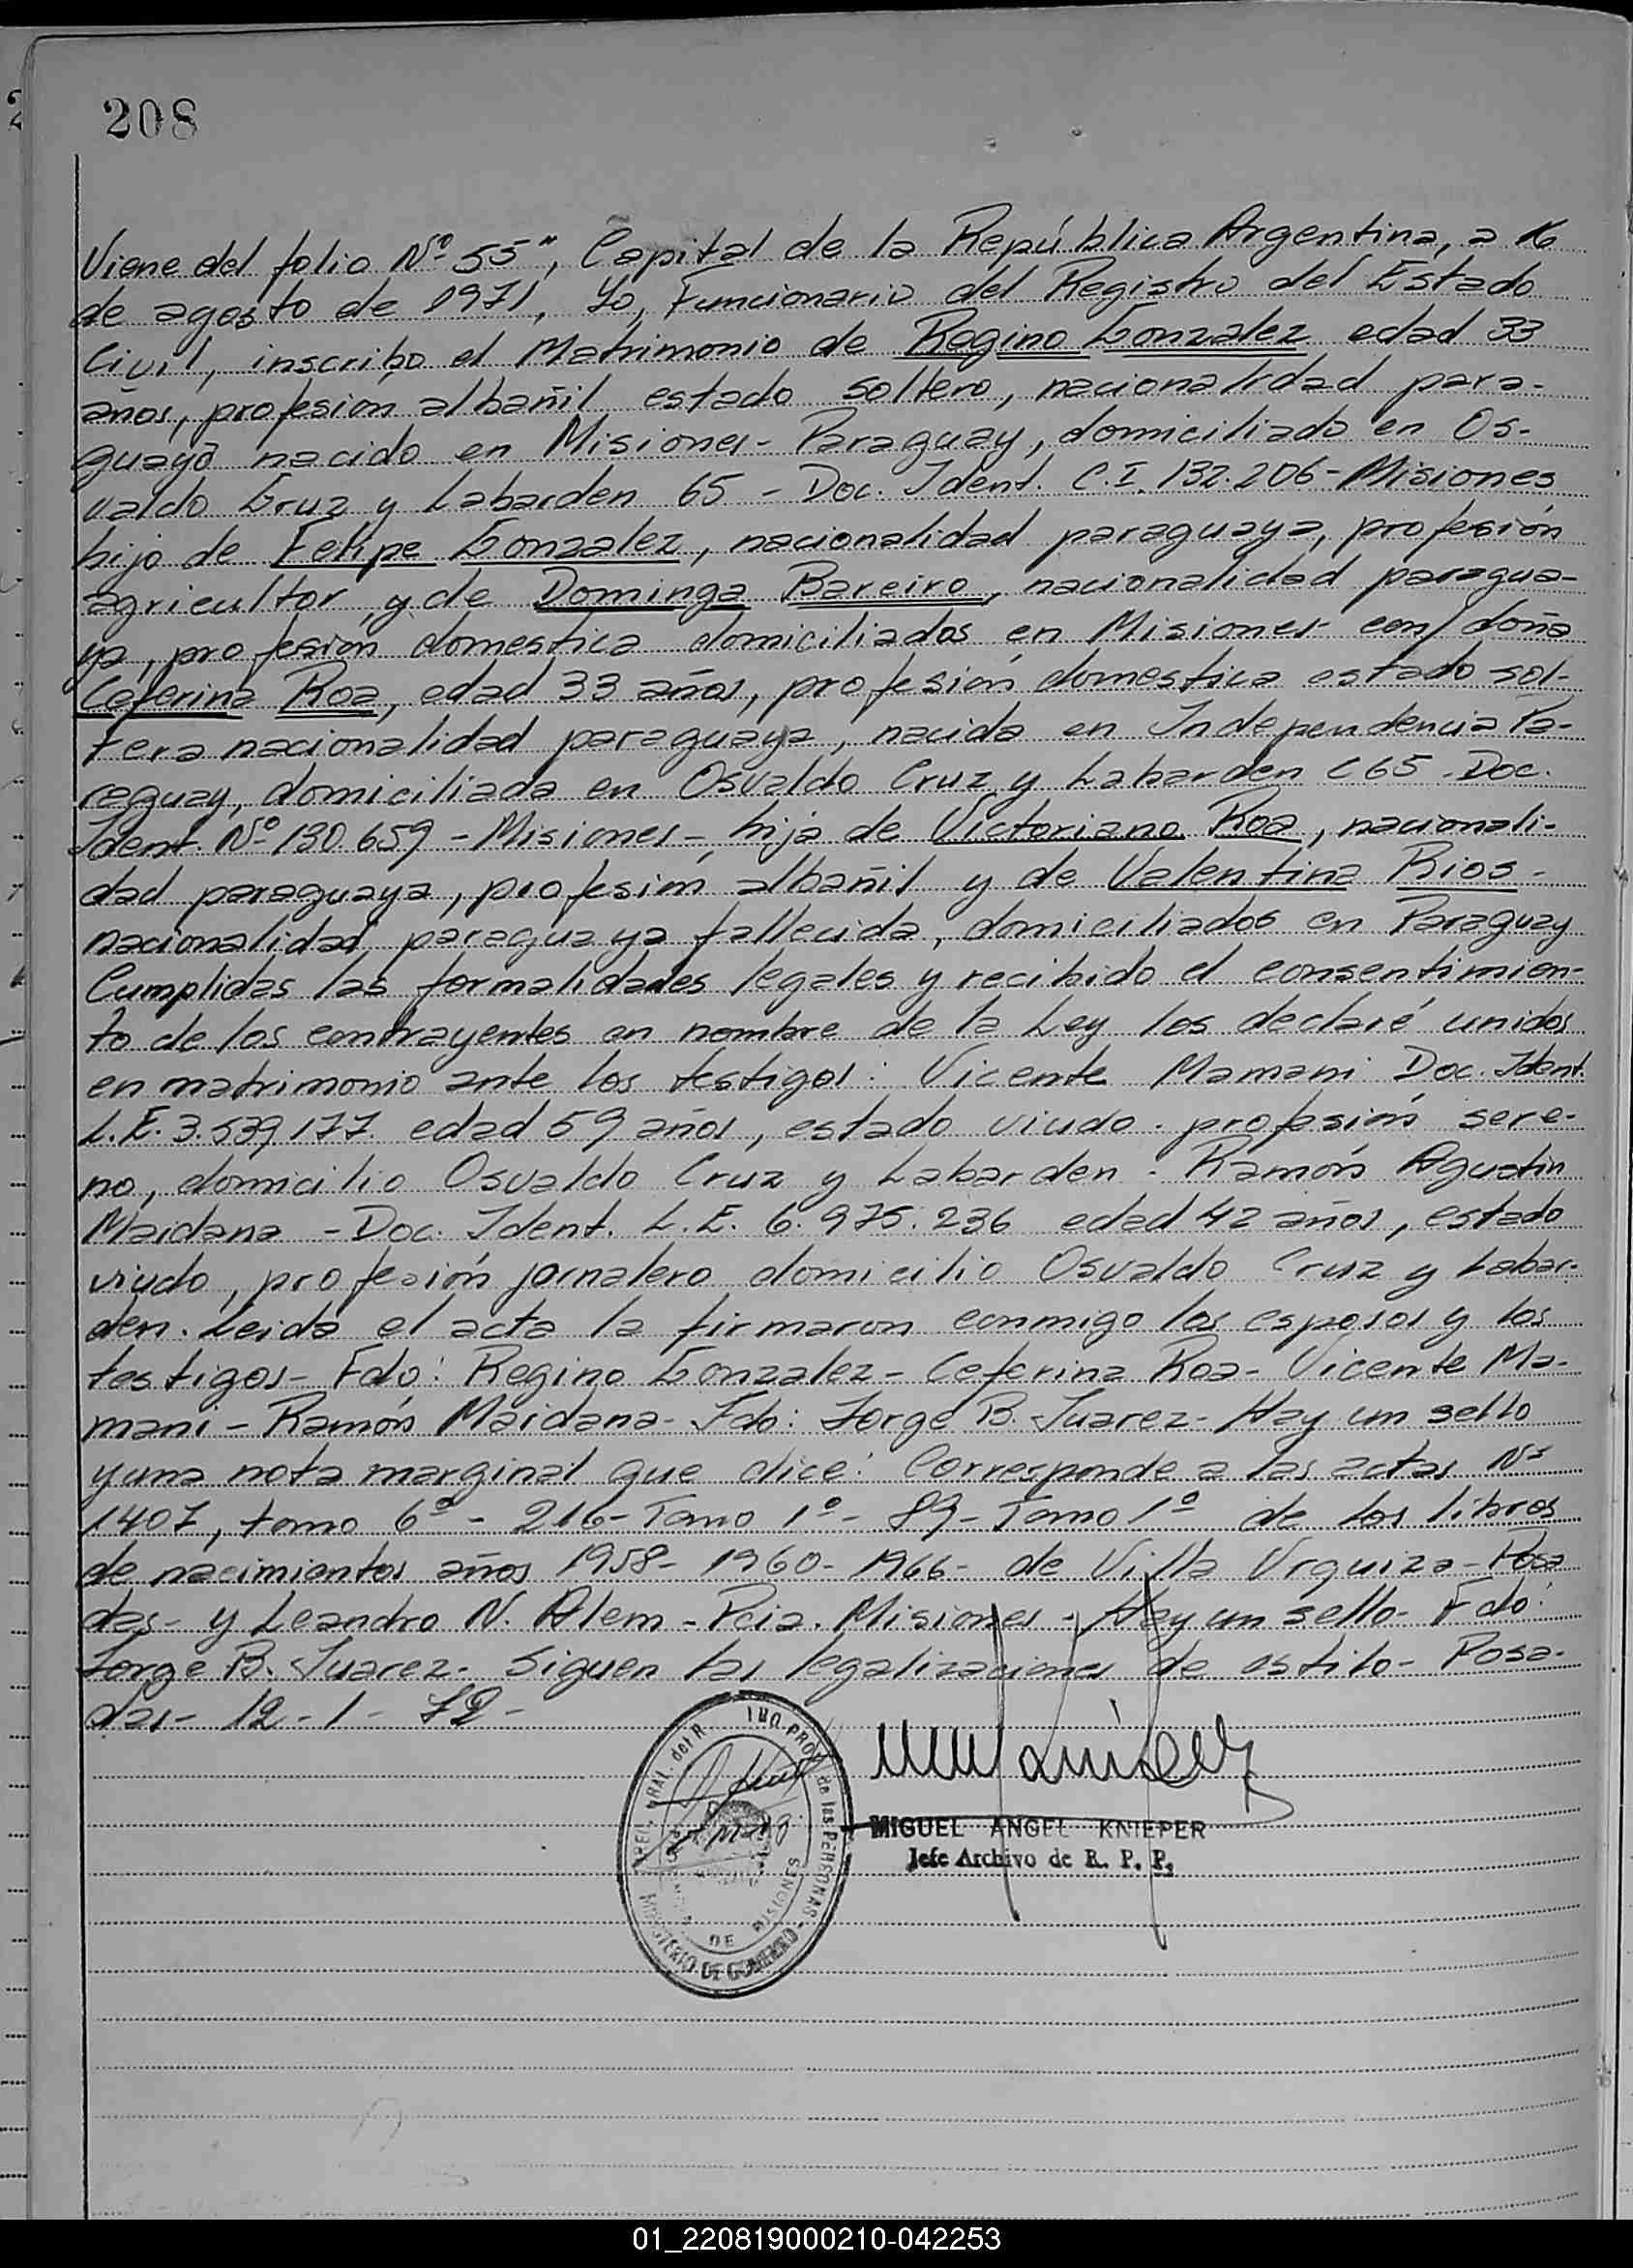 208
Viene del folio Nº 55", Capital de la República Argentina, a 16
de agosto de 1971, Yo, Funcionario del Registro del Estado
Civil, inscribo el Matrimonio de Regino Gonzalez edad 33
años, profesión albañil estado soltero, nacionalidad para-
guaya nacido en Misiones - Paraguay, domiciliado en Os-
valdo Cruz y Labarden 65 - Doc. Ident. C.I. 132.206 - Misiones
hijo de Felipe Gonzalez, nacionalidad paraguaya, profesión
agricultor y de Dominga Bareiro, nacionalidad paragua-
ya, profesión domestica domiciliados en Misiones con/ doña
Ceferina Roa, edad 33 años, profesión domestica estado sol-
tera nacionalidad paraguaya, nacida en Independencia Pa-
raguay, domiciliada en Osvaldo Cruz y Labarden C 65. Doc.
Ident. Nº 130.659 - Misiones -, hija de Victoriano Roa, nacionali-
dad paraguaya, profesión albañil y de Valentina Rios -
nacionalidad paraguaya fallecida, domiciliados en Paraguay
Cumplidas las formalidades legales y recibido el consentimien-
to de los contrayentes en nombre de la Ley los declaré unidos
en matrimonio ante los testigos: Vicente Mamani Doc. Ident.
L.E. 3.539.177. edad 59 años, estado viudo. profesión sere-
no, domicilio Osvaldo Cruz y Labarden. Ramón Agustin
Maidana - Doc. Ident. L.E. 6.975.236 edad 42 años, estado
viudo, profesión jornalero domicilio Osvaldo Cruz y Labar-
den. Leida el acta la firmaron conmigo los esposos y los
testigos - Fdo: Regino Gonzalez - Ceferina Roa - Vicente Ma-
mani - Ramón Maidana - Fdo: Jorge B. Juarez - Hay un sello
y una nota marginal que dice: Corresponde a las actas Nº
1407, tomo 6º - 216 - Tomo 1º - 89 - Tomo 1º de los libros
de nacimientos años 1958 - 1960 - 1966 - de Villa Urquiza - Posa
das - y Leandro N. Alem - Pcia. Misiones - Hay un sello - Fdo:
Jorge B. Juarez - Siguen las legalizaciones de estilo - Posa-
das - 12 - 1 - 72 -
PROV. de las PERSONAS
MINISTERIO DE GOBIERNO
DE MISIONES
MIGUEL ANGEL KNIEPER
Jefe Archivo de R. P. P.
01_220819000210-042253